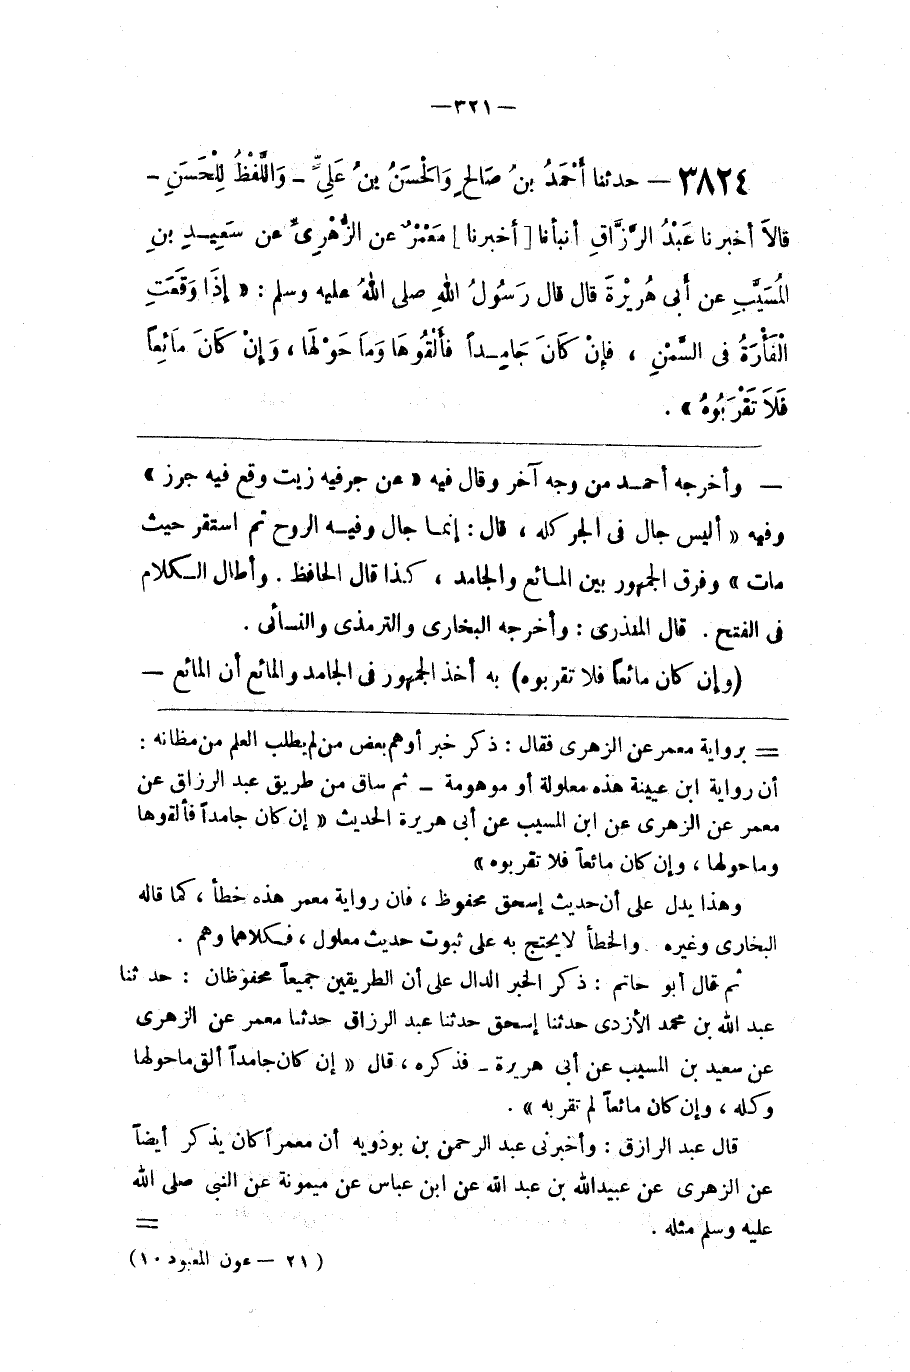 —٣٢١—
٣٨٢٤ — حدثنا أَحْمَدُ بنُ صَالحٍ وَالْحَسَنُ بنُ عَلِيٍّ - وَاللَّفْظُ لِلْحَسَنِ -
قالاَ أخبرنا عَبْدُ الرَّزَّاقِ أنبأنا [ أخبرنا ] مَعْمَرٌ عن الزُّهْرِيِّ عن سَعِيدِ بنِ
الْمُسَيَّبِ عن أَبي هُرَيْرَةَ قال قال رَسُولُ اللهِ صلى اللهُ عليه وسلم : « إذَا وَقَعَتِ
الْفَأْرَةُ في السَّمْنِ ، فإنْ كَانَ جَامِداً فأَلْقُوهَا وَمَا حَوْلَهَا ، وَإنْ كَانَ مَائِعاً
فَلاَ تَقْرَبُوهُ » .
— وأخرجه أحمد من وجه آخر وقال فيه « عن جرفيه زيت وقع فيه جرز »
وفيه « أليس جال فى الجر كله ، قال : إنما جال وفيه الروح ثم استقر حيث
مات » وفرق الجمهور بين المائع والجامد ، كذا قال الحافظ . وأطال الكلام
فى الفتح . قال المنذرى : وأخرجه البخارى والترمذى والنسائى .
(وإن كان مائعاً فلا تقربوه) به أخذ الجمهور فى الجامد والمائع أن المائع —
= برواية معمر عن الزهرى فقال : ذكر خبر أوهم بعض من لم يطلب العلم من مظانه :
أن رواية ابن عيينة هذه معلولة أو موهومة - ثم ساق من طريق عبد الرزاق عن
معمر عن الزهرى عن ابن المسيب عن أبى هريرة الحديث « إن كان جامداً فألقوها
وماحولها ، وإن كان مائعاً فلا تقربوه »
وهذا يدل على أن حديث إسحق محفوظ ، فان رواية معمر هذه خطأ ، كما قاله
البخارى وغيره . والخطأ لايحتج به على ثبوت حديث معلول ، فكلاهما وهم .
ثم قال أبو حاتم : ذكر الخبر الدال على أن الطريقين جميعاً محفوظان : حدثنا
عبد الله بن محمد الأزدى حدثنا إسحق حدثنا عبد الرزاق حدثنا معمر عن الزهرى
عن سعيد بن المسيب عن أبى هريرة - فذكره ، قال « إن كان جامداً ألق ماحولها
وكله ، وإن كان مائعاً لم تقربه » .
قال عبد الرازق : وأخبرنى عبد الرحمن بن بوذويه أن معمراً كان يذكر أيضاً
عن الزهرى عن عبيدالله بن عبد الله عن ابن عباس عن ميمونة عن النبى صلى الله
عليه وسلم مثله . =
( ٢١ — عون المعبود ١٠)